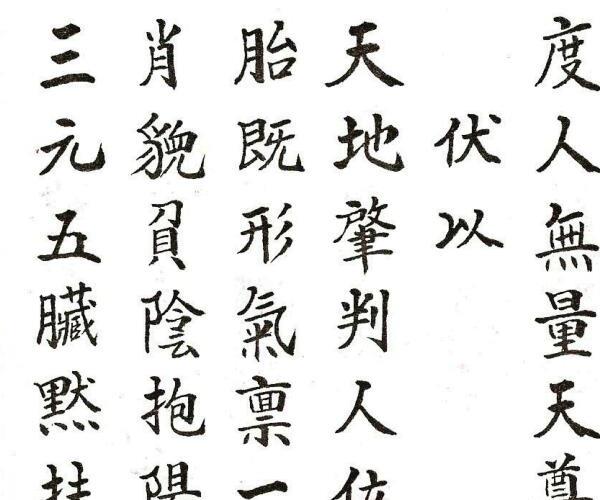 度人無量天尊
伏以
天地肇判人
胎既形氣禀一
肖貌負陰抱陽
三元五臟默